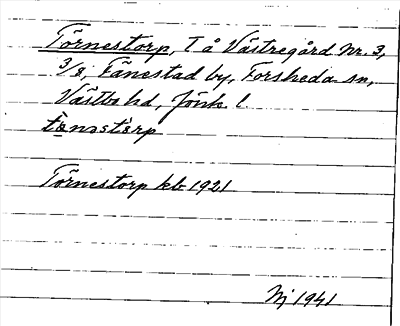 Törnestorp, T å Västregård Nr. 3,
3/8, Fånestad by, Forsheda sn,
Västbo hd, Jönk. l.
Törnestorp kb 1921
Nj 1941